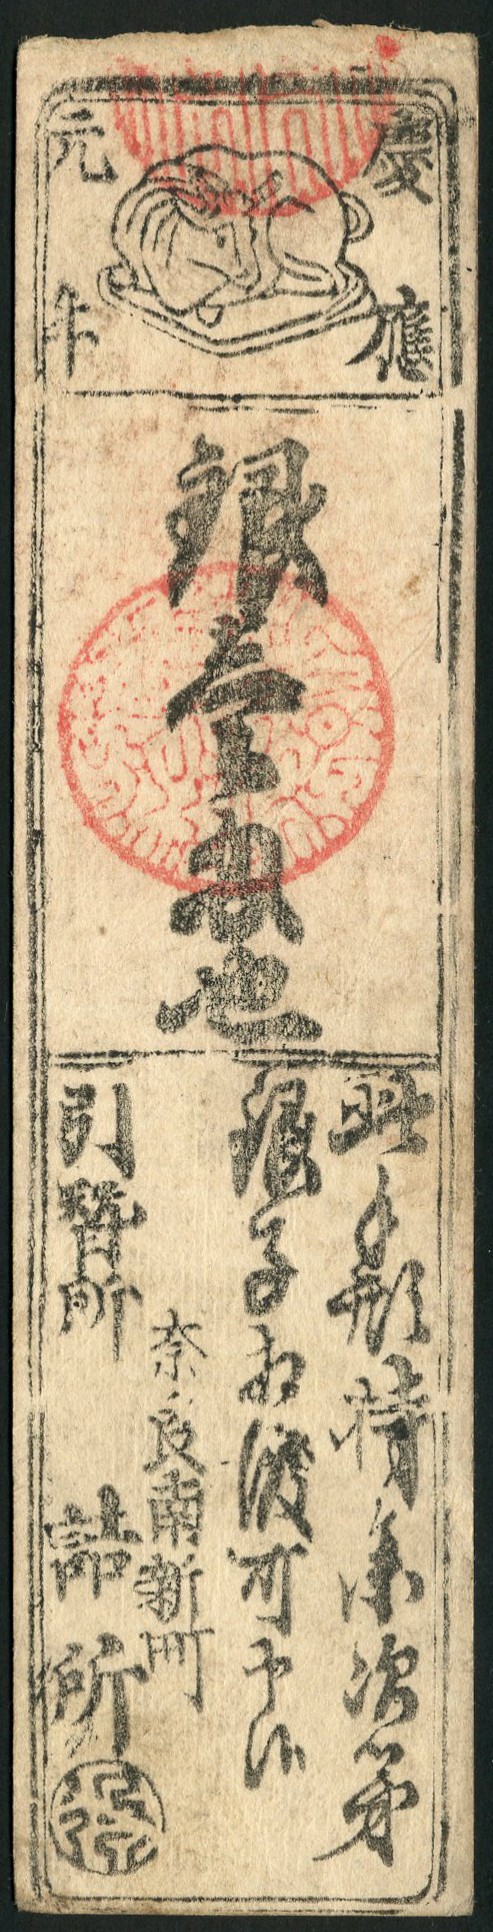 慶應
元年
銀壱匁也
此手形持参次第
銀子相渡可申候
奈良南新町
引替所 詰所